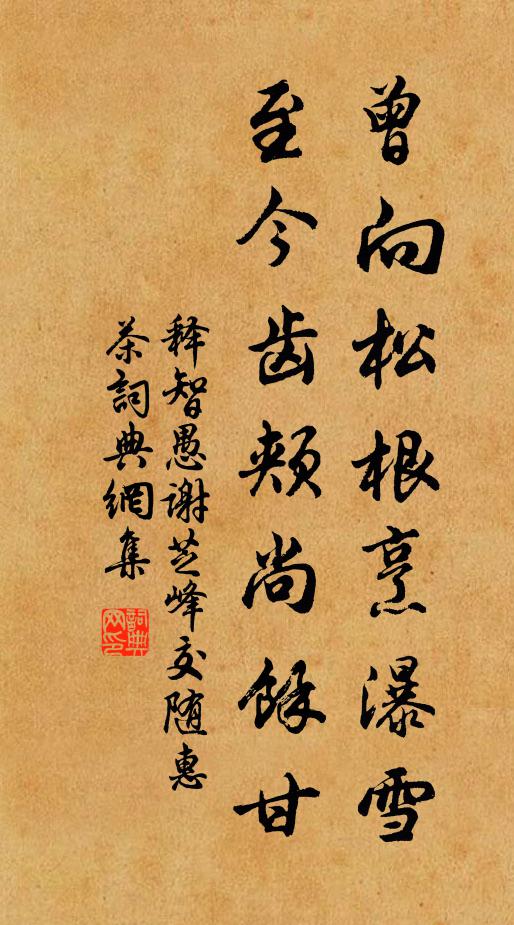 曾向松根烹瀑雪
至今齿颊尚馀甘
释智愚谢芝峰交随惠
茶詞典網集
詞典网印